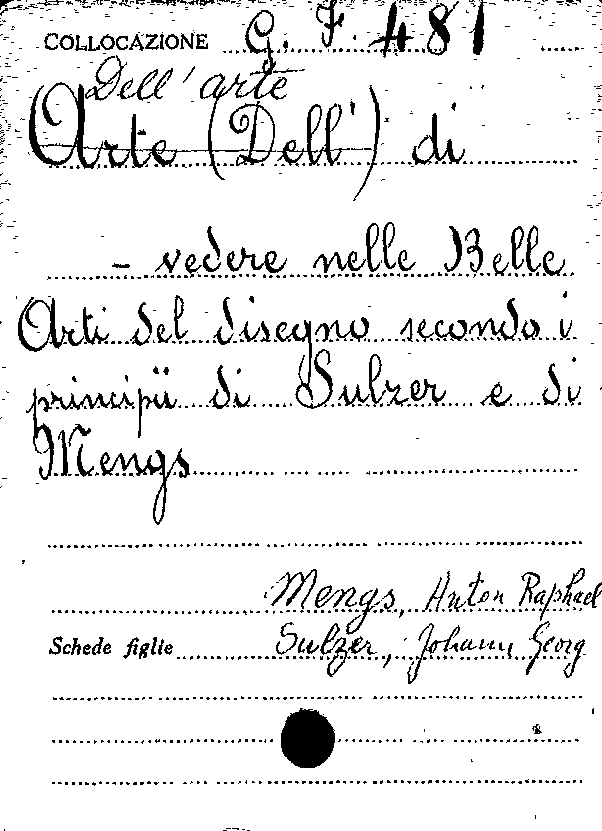 COLLOCAZIONE G. F. 481
Dell'arte
Arte (Dell') di
- vedere nelle Belle
Arti del disegno secondo i
principii di Sulzer e di
Mengs
Mengs, Anton Raphael
Schede figlie Sulzer, Johann Georg